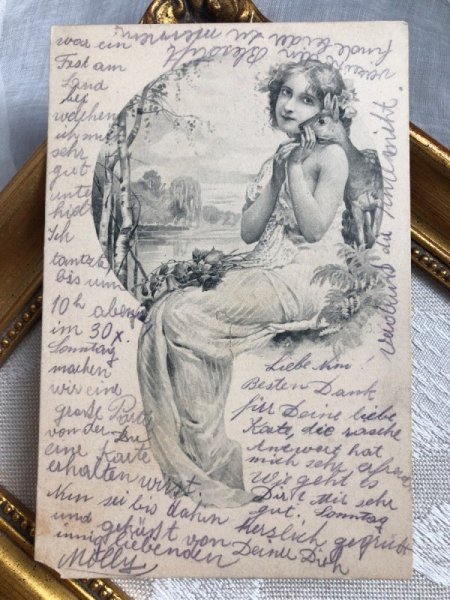 Liebe Mimi!
Besten Dank
für Deine liebe
Karte, die rasche
Antwort hat
mich sehr gefreut
Wie geht es
Dir? Mir sehr
gut. Sonntag
war ein
Fest am
Land
bei
welchen
ich mich
sehr
gut
unter
hielt
Ich
tanzte
bis um
10h abend
im 30x.
Sonntag
machen
wir eine
große Partie
von der Du
eine Karte
erhalten wirst.
Nun sei bis dahin
herzlich gegrüßt
und geküßt von Deine Dich
innig liebenden
Molly
finde leider zu